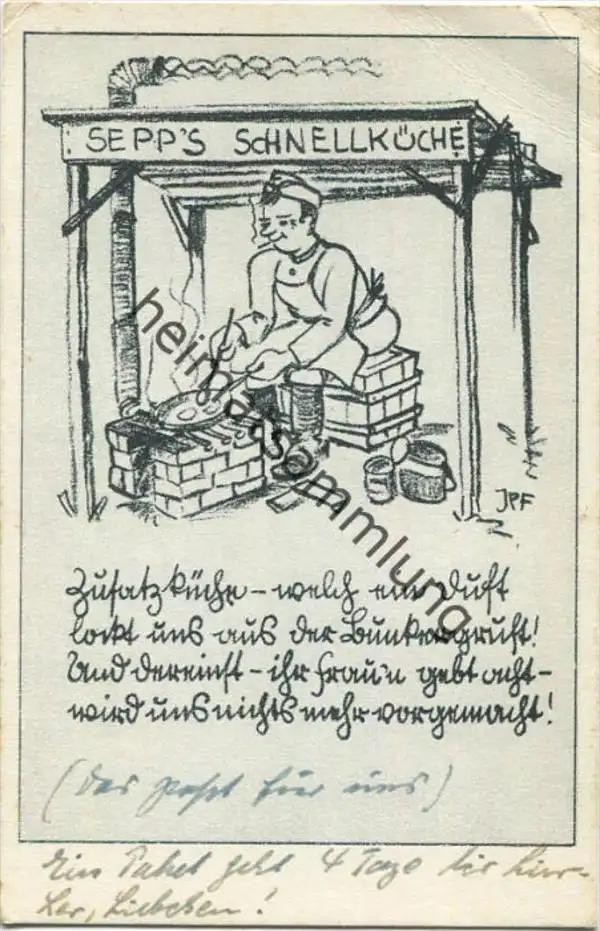 SEPP'S SCHNELLKÜCHE
heimatsammlung
JPF
Zusatzküche – welch ein Duft
lockt uns aus der Bunkergruft!
Und dereinst – ihr Frau'n gebt acht –
wird uns nichts mehr vorgemacht!
(Das paßt für uns)
Ein Paket geht 4 Tage bis hier-
her, Liebchen!